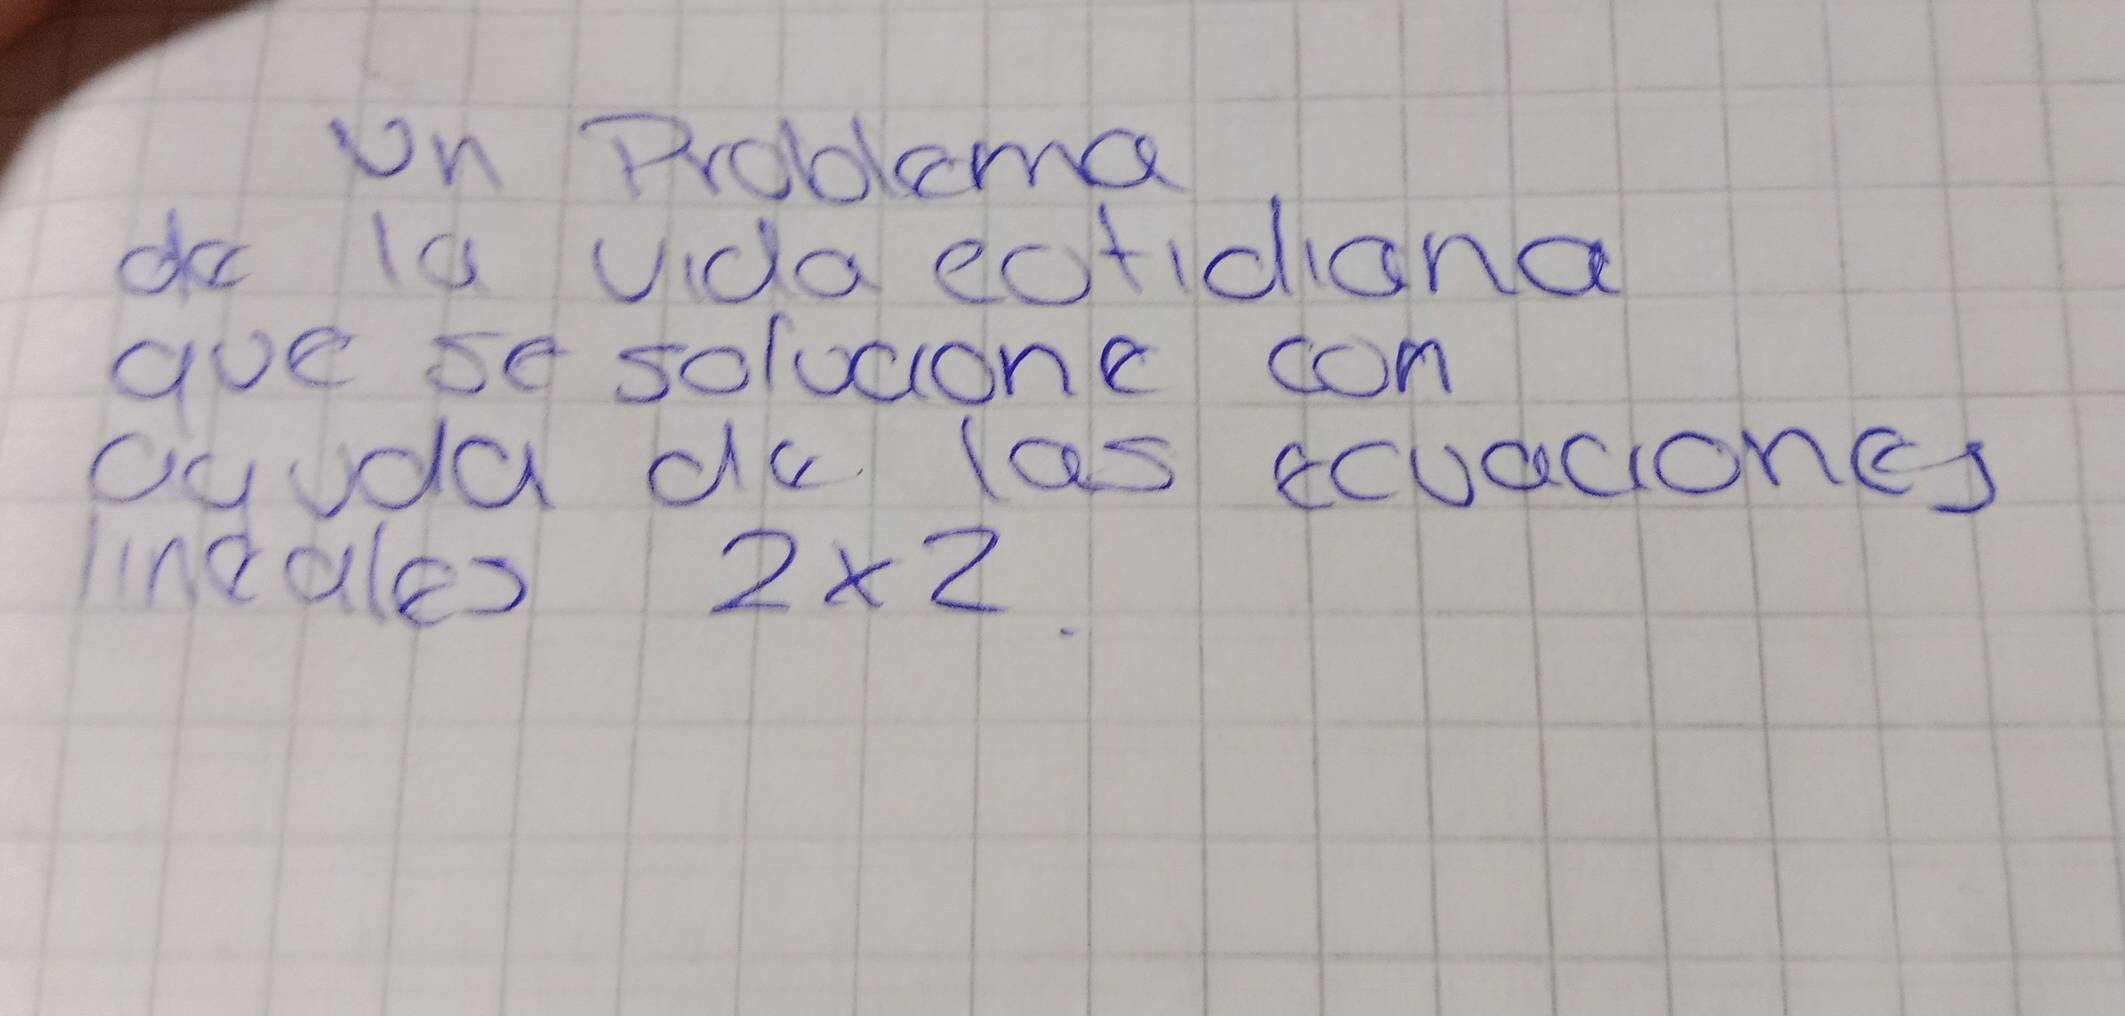 Un Problema
de la vida cotidiana
que se solucione con
ayuda de las ecuaciones
lineales 2x2.